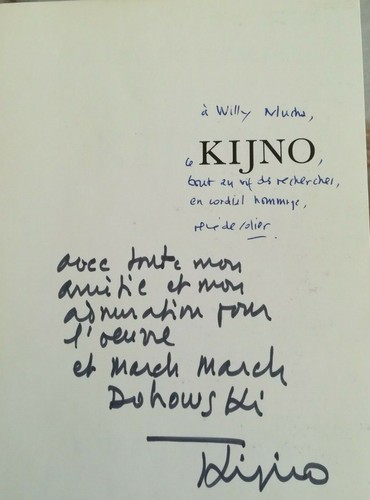 à Willy Mucha,
ce KIJNO,
tout au vif des recherches,
en cordial hommage,
rené de solier
avec toute mon
amitié et mon
admiration pour
l'oeuvre
et March March
Dohowski
Kijno